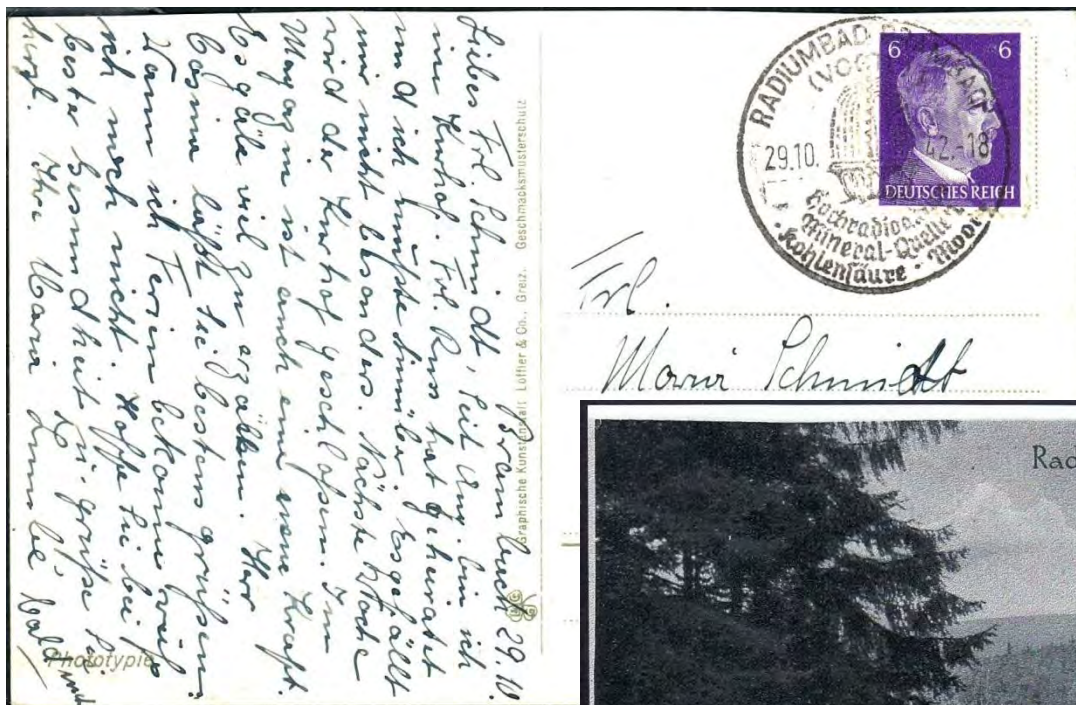 Brambach 29.10.
Liebes Frl. Schmidt, seit Aug. bin ich
im Kurhof. Frl. Russ hat geheiratet
und ich mußte hinüber. Es gefällt
mir nicht besonders. Nächste Woche
wird der Kurhof geschlossen. Im
Magazin ist auch eine neue Kraft.
Es gäbe viel zu erzählen.
läßt Sie bestens grüßen.
Wann ich Ferien bekomme weiß
ich noch nicht. Hoffe Sie bei
bester Gesundheit u. grüße Sie
herzl. Ihre Maria
und
Phototypie
Graphische Kunstanstalt Löffler & Co., Greiz. Geschmacksmusterschutz
RADIUMBAD
(VOG
29.10. 42.-18
Mineral-Quelle
Kohlensäure · Moor
6 6
DEUTSCHES REICH
Frl.
Maria Schmidt
Rad